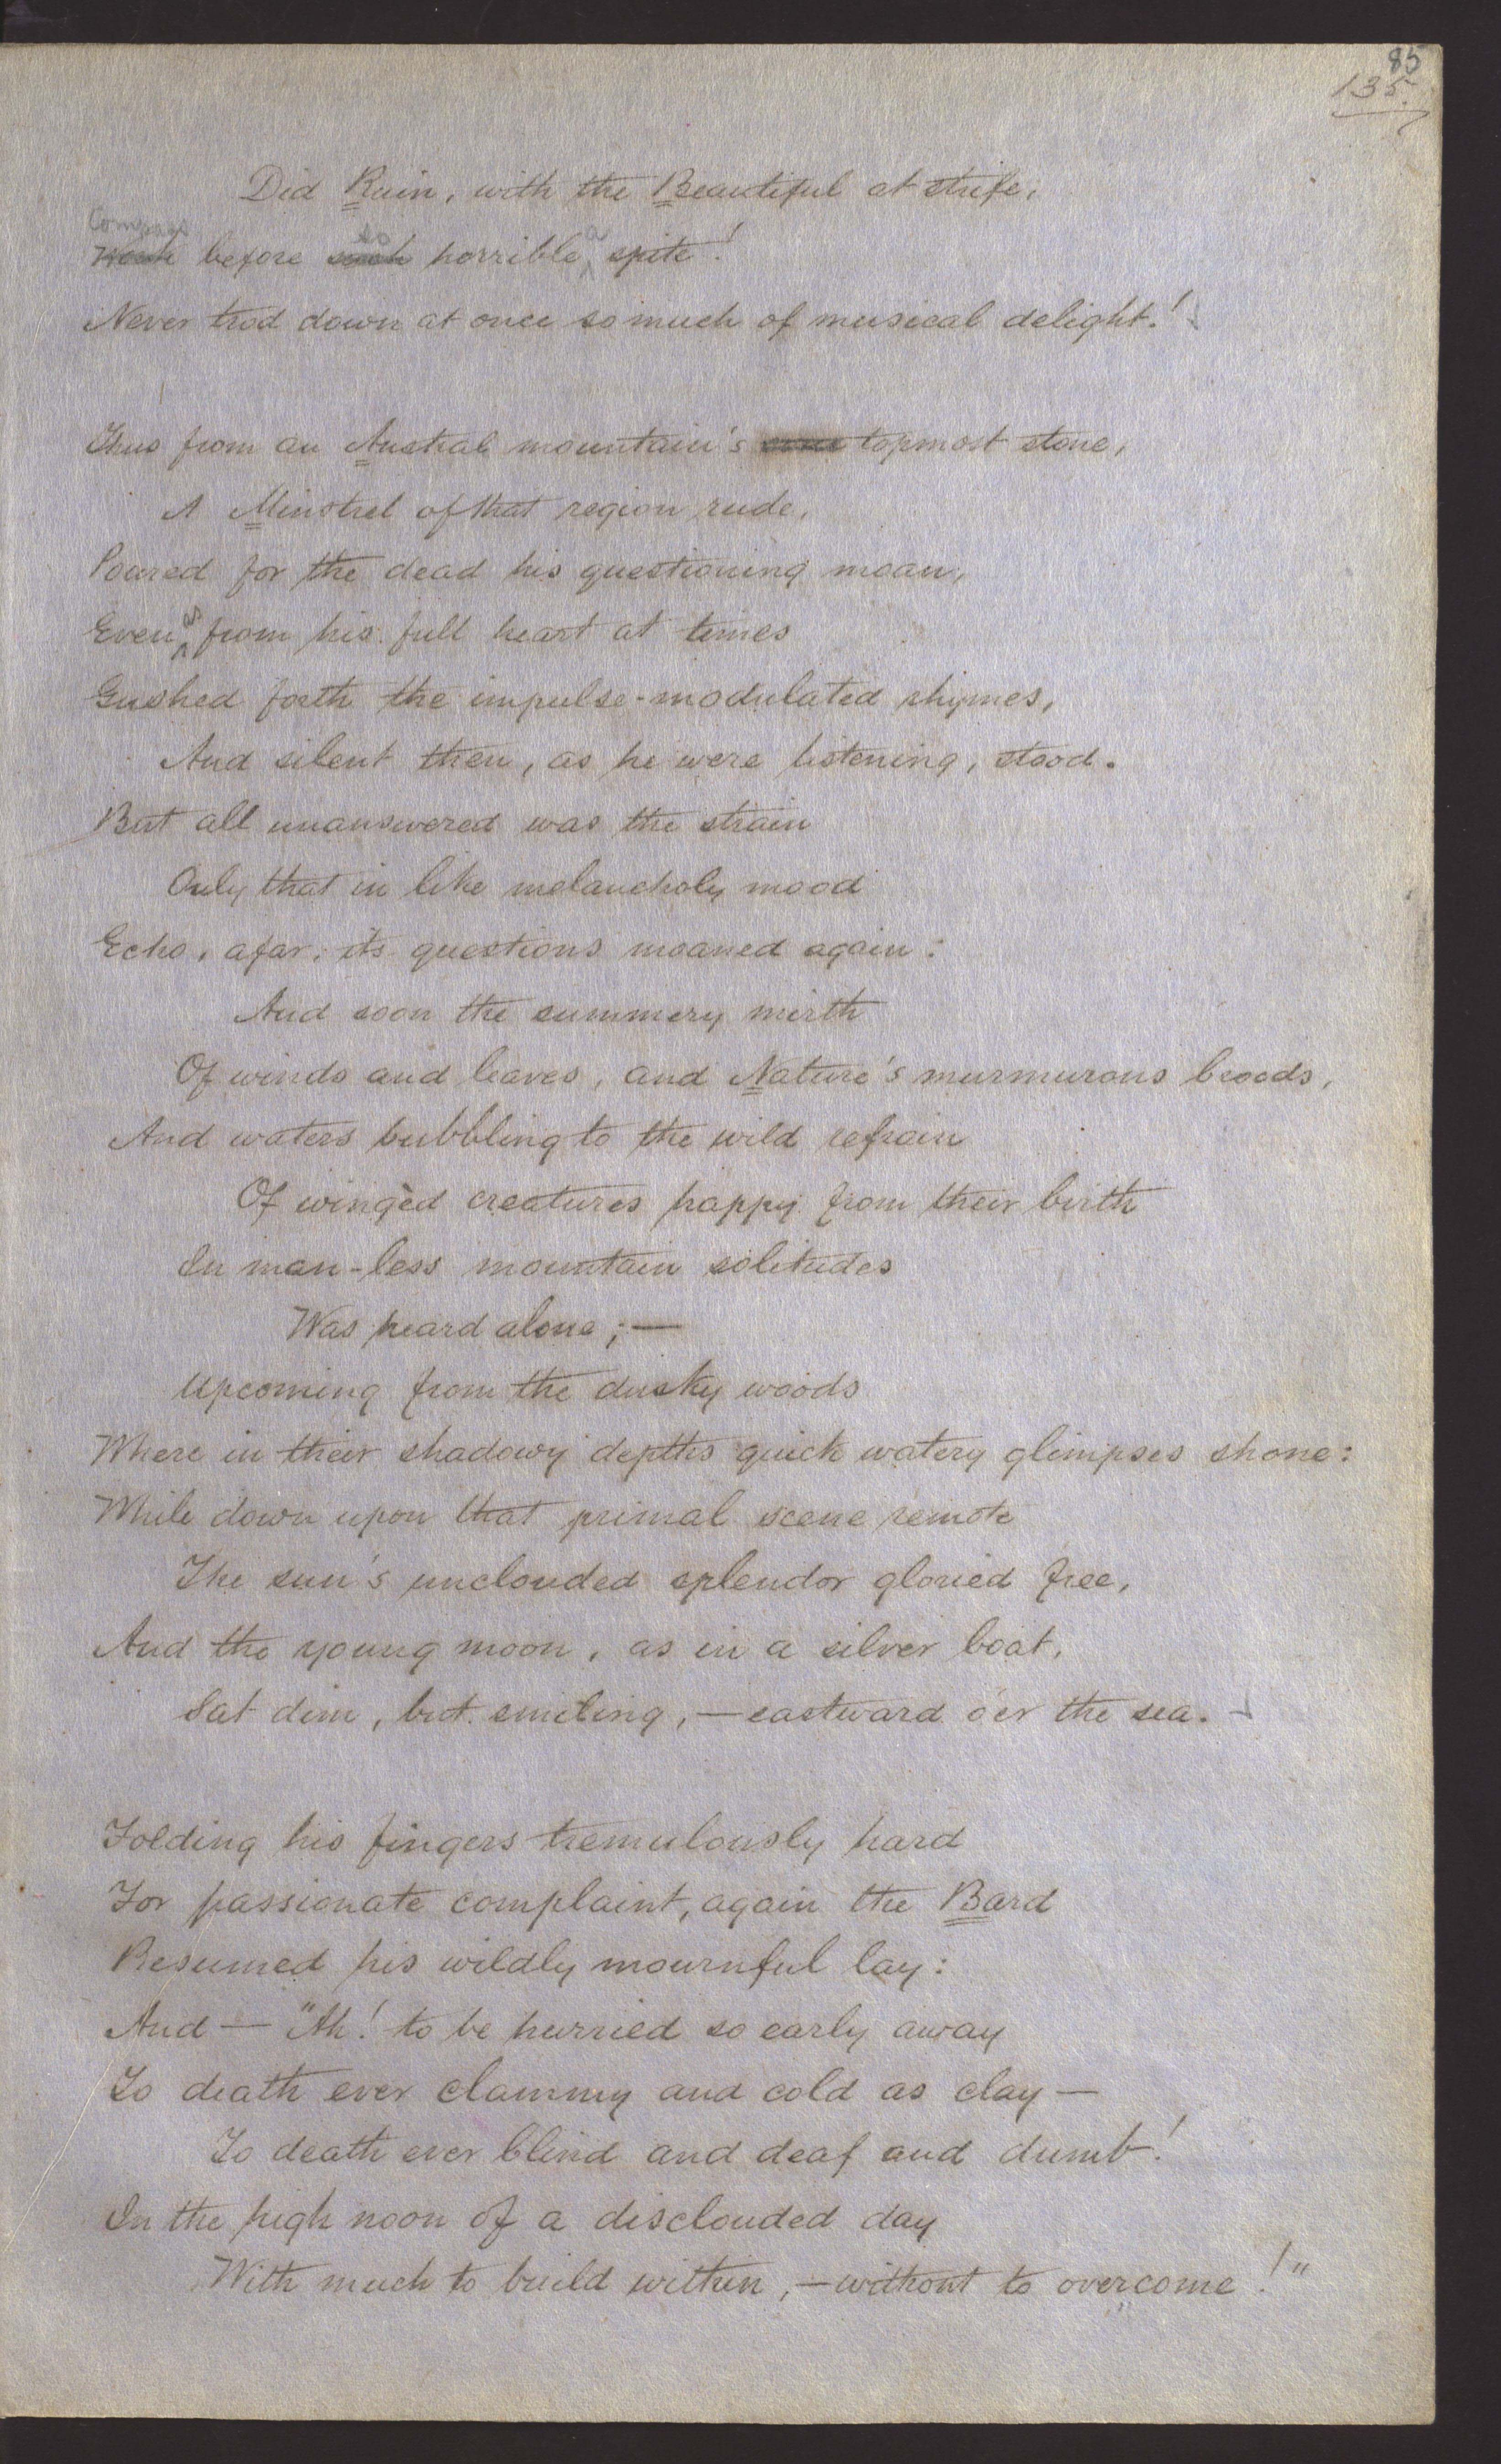 85
135.
Did Ruin, with the Beautiful at strife,
Compass
Work before such so horrible a spite!
Never trod down at once so much of musical delight!
Thus from an Austral mountain's topmost stone,
A Minstrel of that region rude,
Poured for the dead his questioning moan,
Even as from his full heart at times
Gushed forth the impulse-modulated rhymes,
And silent then, as he were listening, stood.
But all unanswered was the strain
Only that in like melancholy mood
Echo, afar, its questions moaned again:
And soon the summery mirth
Of winds and leaves, and Nature's murmurous broods,
And waters bubbling to the wild refrain
Of wingèd creatures happy from their birth
In man-less mountain solitudes
Was heard alone;—
Upcoming from the dusky woods
Where in their shadowy depths quick watery glimpses shone:
While down upon that primal scene remote
The sun's unclouded splendor gloried free,
And the young moon, as in a silver boat,
Sat dim, but smiling,—eastward o'er the sea.
Folding his fingers tremulously hard
For passionate complaint, again the Bard
Resumed his wildly mournful lay:
And — "Ah! to be hurried so early away
To death ever clammy and cold as clay —
To death ever blind and deaf and dumb!
In the high noon of a disclouded day
With much to build within,—without to overcome!"